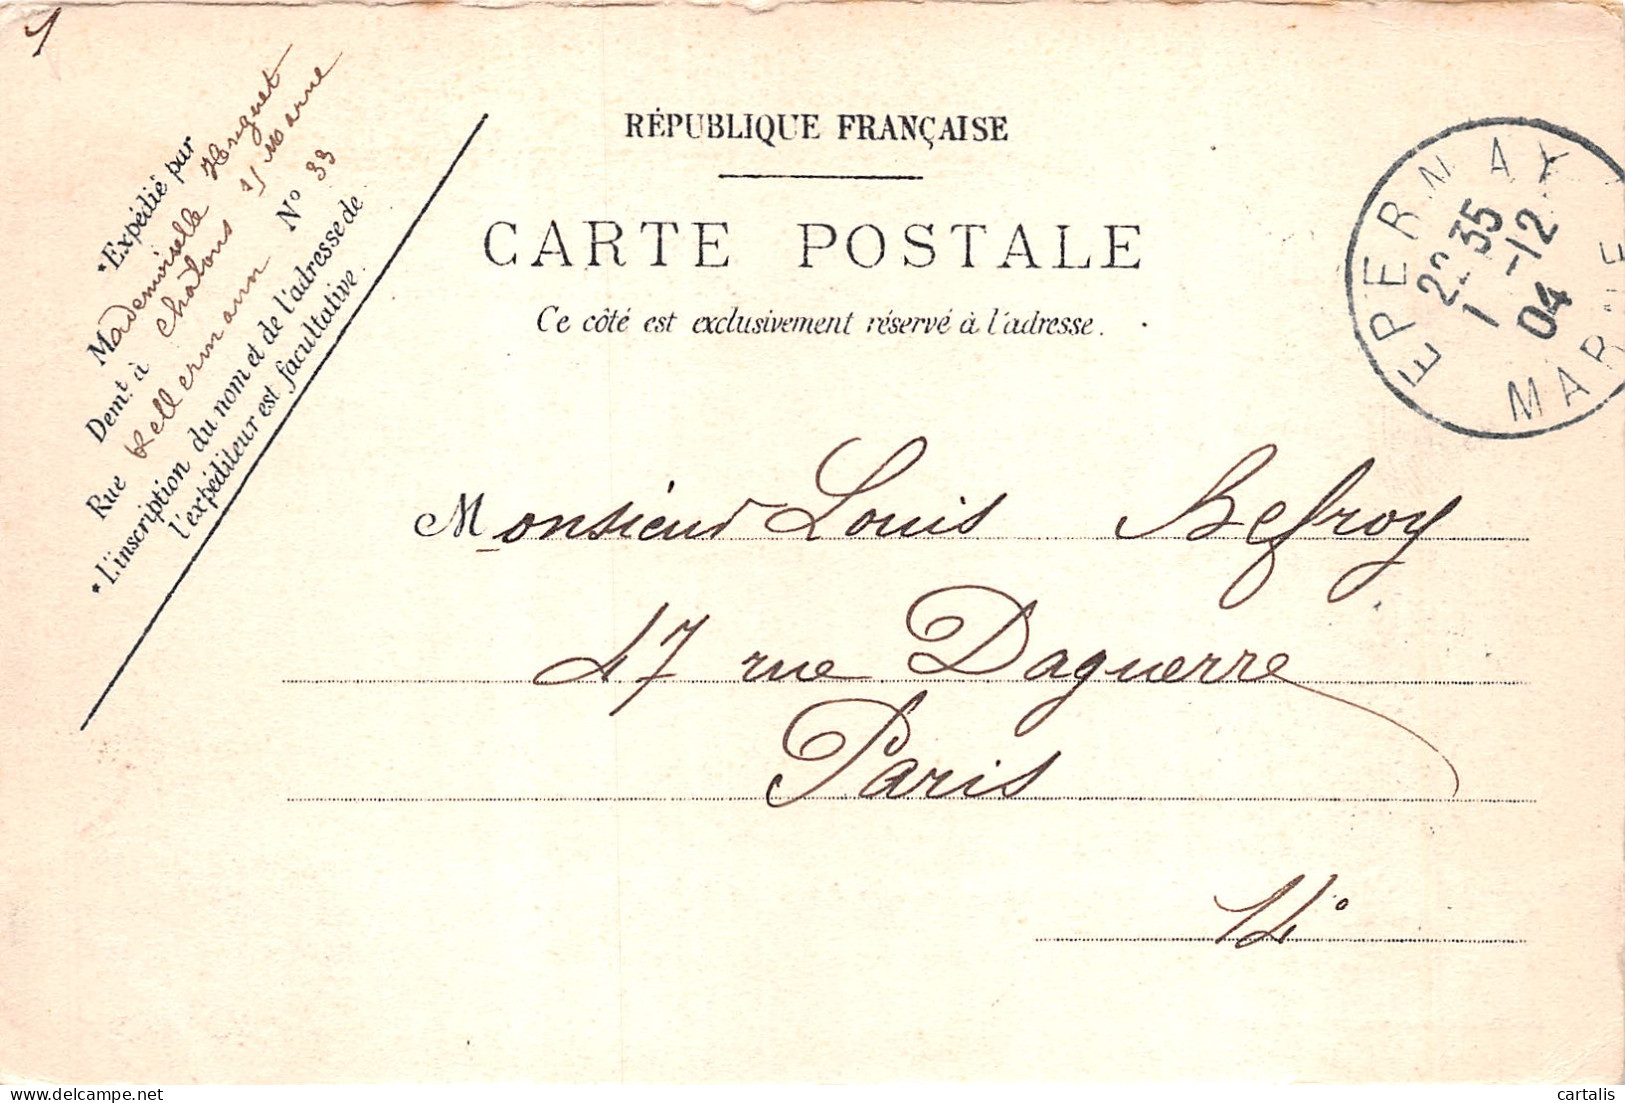 1
*Expédié par
Mademoiselle Huguet
Demt. à Châlons s/ Marne
Rue Kellermann N° 33
*L'inscription du nom et de l'adresse de
l'expéditeur est facultative.
RÉPUBLIQUE FRANÇAISE
CARTE POSTALE
Ce côté est exclusivement réservé à l'adresse.
EPERNAY
22 35
1 -12
04
MARNE
Monsieur Louis Befroy
47 rue Daguerre
Paris
14e
cartalis